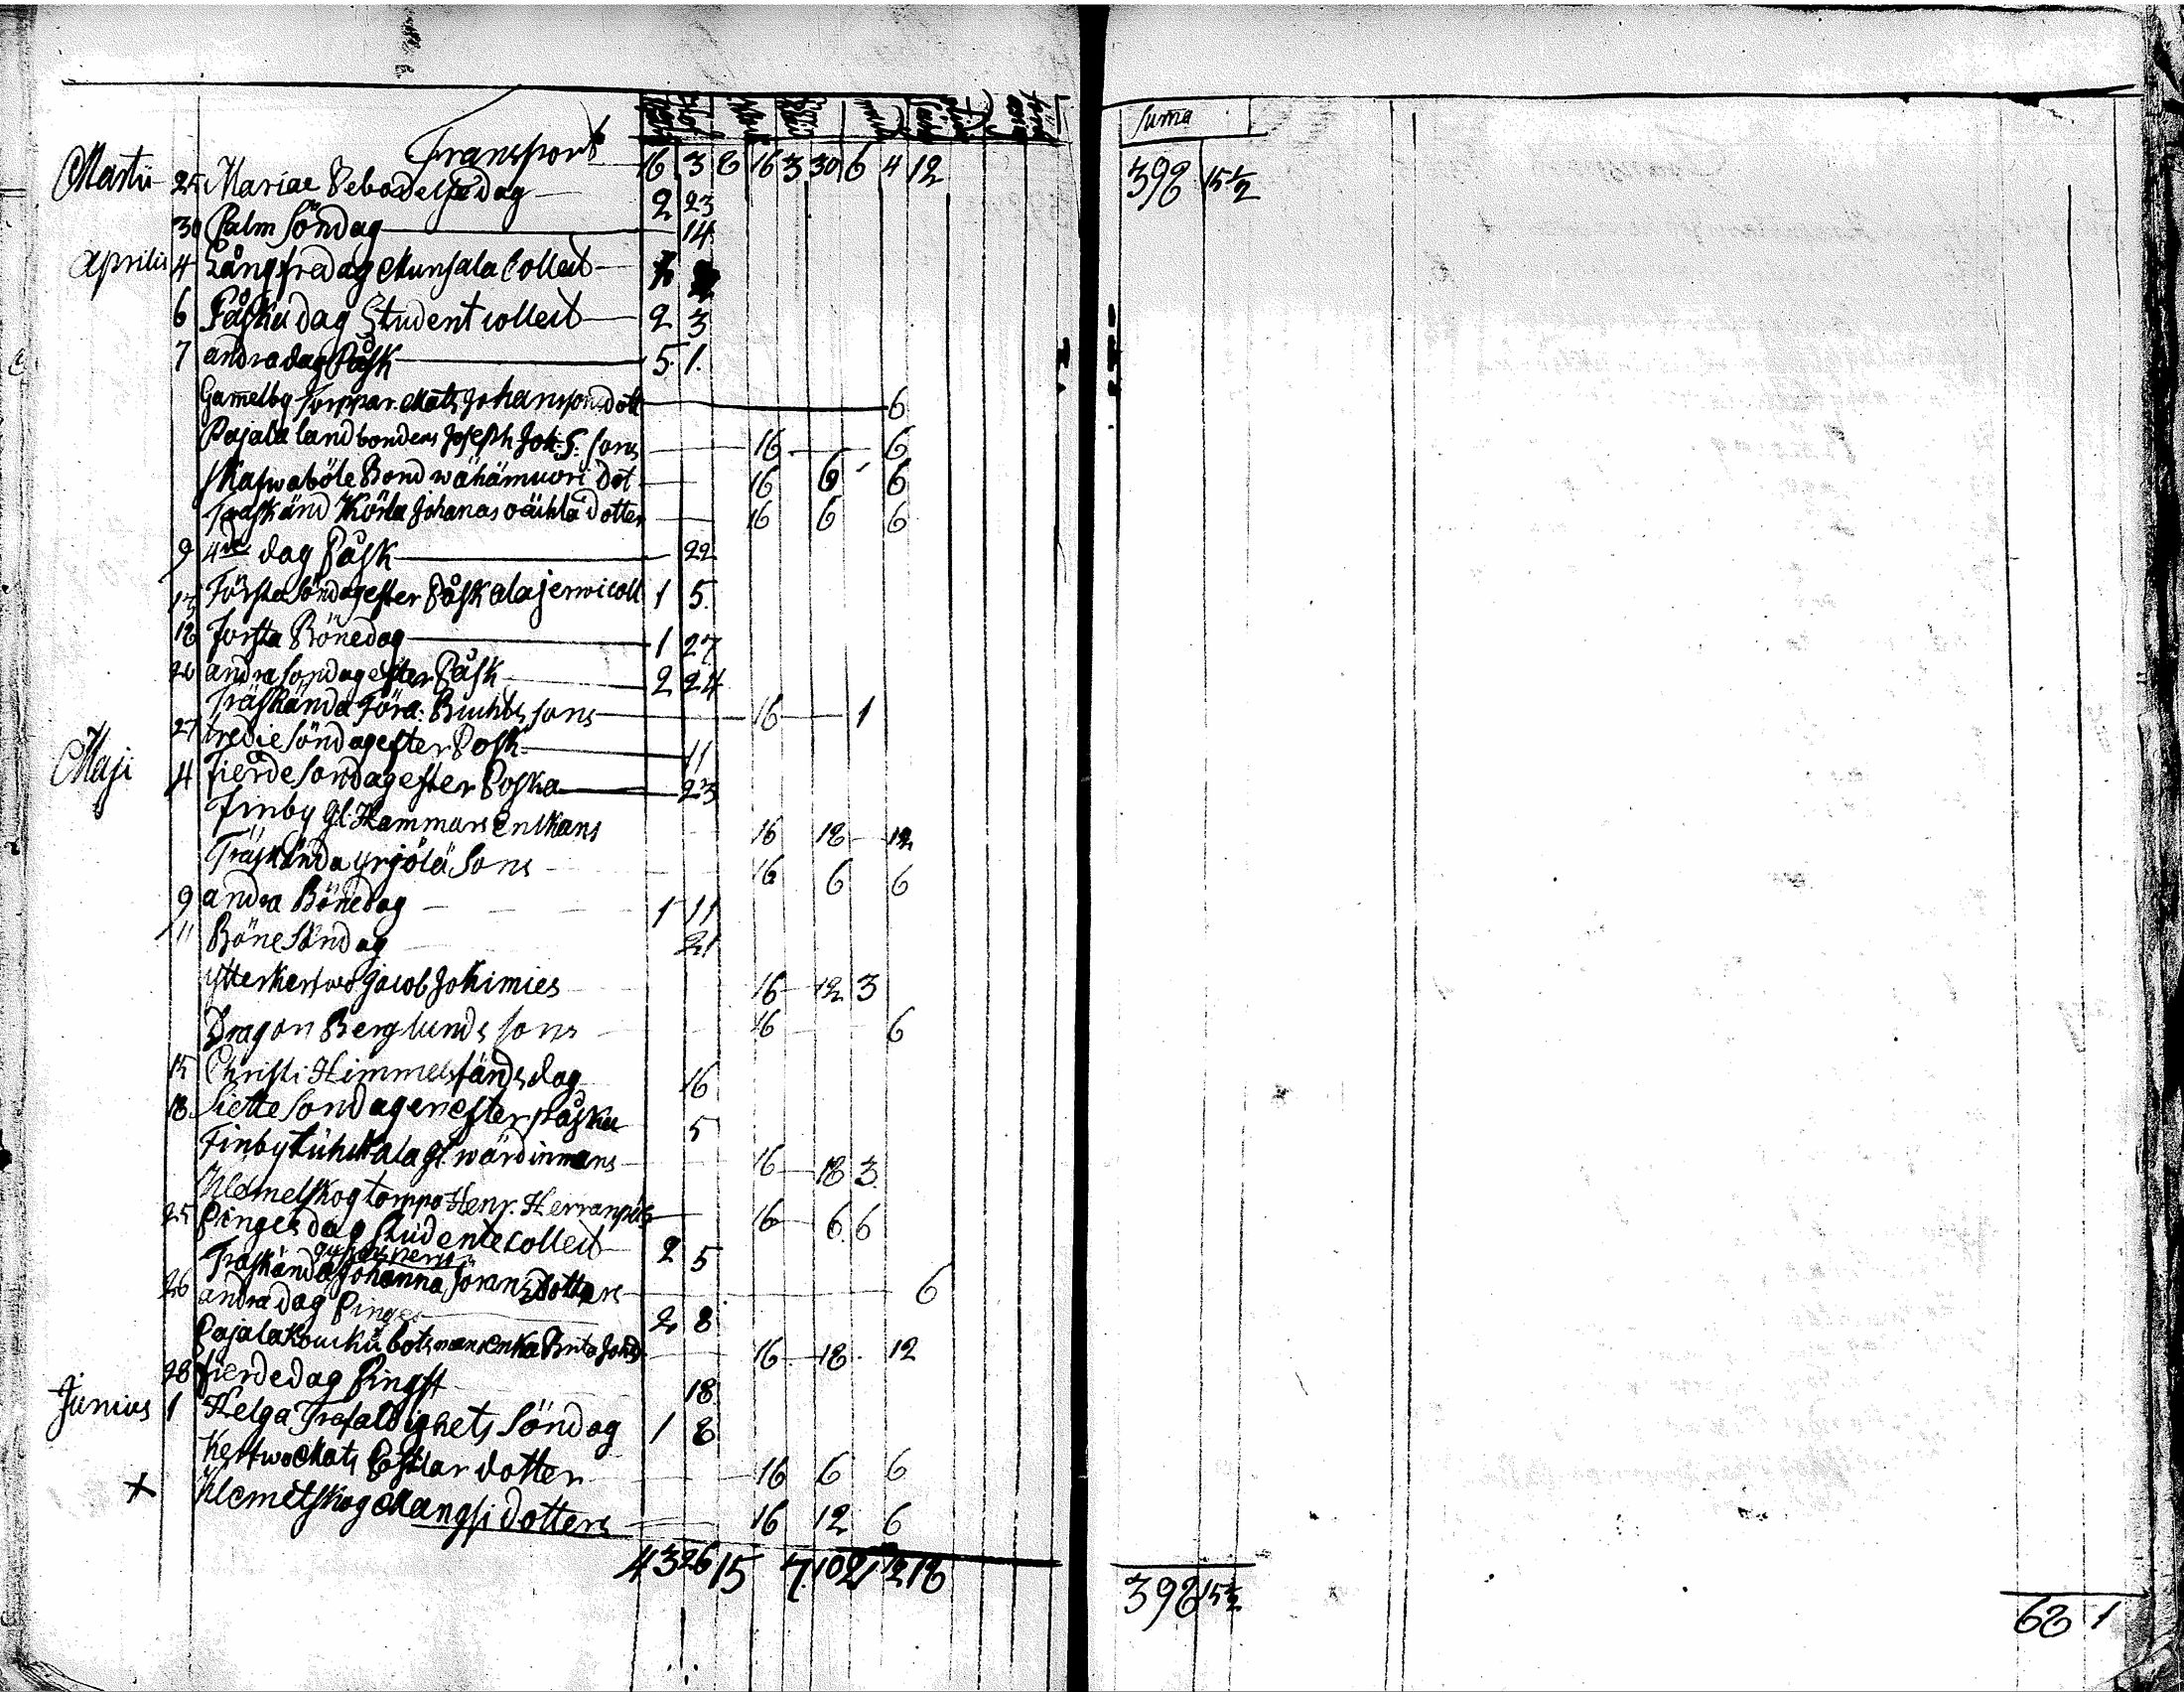 Suma
Transport 16 3 8 16 3 30 6 4 12 398 15½
Martii 25 Mariae Bebodelse dag 2 23
30 Palm Söndag 14
Aprilis 4 Långfredag Munsala Collect
6 Påskadag Student collect 2 3
7 andra dag Påsk 5 1
Gamelby Torppar. Mats Johanssons dott 6
Pajala landbondens Joseph Joh: S: Sons 16 6
Skafwaböle Bond wähämuori Dot 16 6 6
Träskänd Johanas dotter 16 6 6
9 4de dag Påsk 22
13 Första Söndag efter Påsk alajerwi coll 1 5
18 Första Bönedag 1 27
20 andra Söndag efter Påsk 2 24
Träskända Jöra: Sons 16 1
27 tredie Söndag efter Posk 11
Maji 4 Fierde Sondag efter Poska 23
Finby Gl. Hammars Enkans 16 18 12
Träskända Yrjölä Sons 16 6 6
9 andra Bönedag 1 11
11 Böne Söndag 21
Ytterkertwo Jacob Johimies 16 12 3
Dragon Berglunds Sons 16 6
15 Christi Himmelsfärds dag 16
18 Siette Sondagen efter påska 5
Finby Gl. wärdinnans 16 18 3
Klemetskog torppa Henr. 16 6 6
25 Pingesdag Studente Collect 2 5
Träskända Johanna Jörans Dotters 6
26 andra dag Pinges 2 8
Pajala botsman enka Brita 16 18 12
28 fierde dag Pingst 18
Junius 1 Helga Trefaldighets Söndag 1 8
Kertwo Mats dotter 16 6 6
+ Klemetskog Mangsi Dotters 16 12 6
43 26 15 7 10 21 12 18 398 15½ 68 1